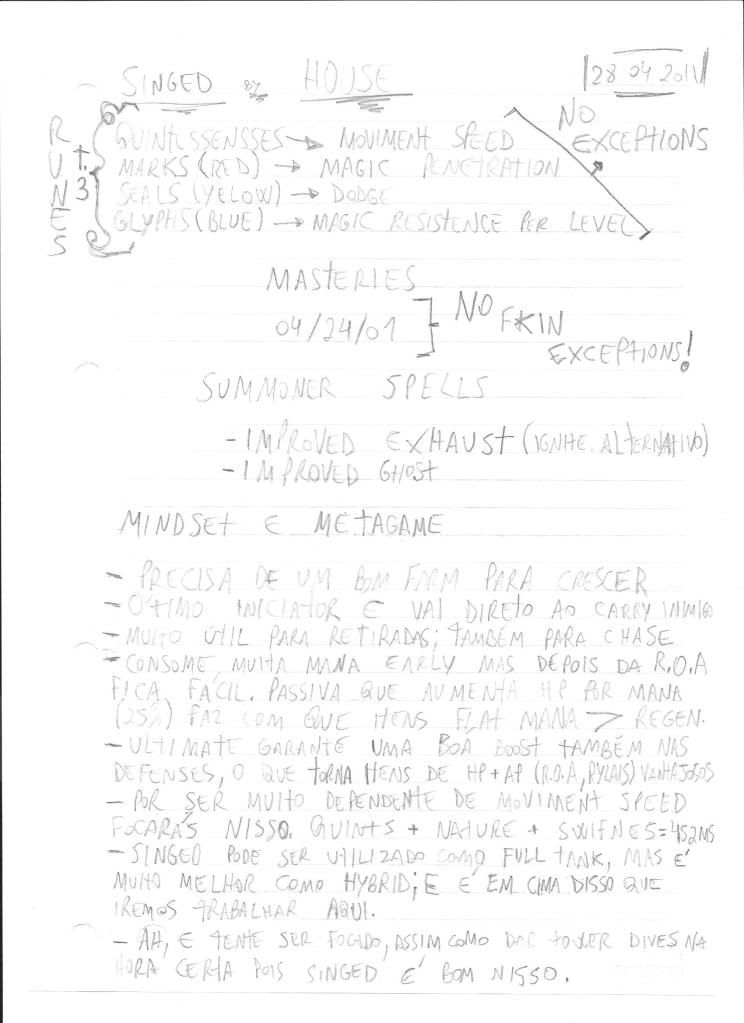 SINGED BY HOUSE
28 04 2011
RUNES
t.3
QUINTESSENSSES → MOVIMENT SPEED
MARKS (RED) → MAGIC PENETRATION
SEALS (YELOW) → DODGE
GLYPHS (BLUE) → MAGIC RESISTENCE PER LEVEL
NO
EXCEPTIONS
MASTERIES
04/24/01
NO
F*KIN
EXCEPTIONS!
SUMMONER SPELLS
- IMPROVED EXHAUST (IGNITE ALTERNATIVO)
- IMPROVED GHOST
MINDSET E METAGAME
- PRECISA DE UM BOM FARM PARA CRESCER
- OTIMO INICIATOR E VAI DIRETO AO CARRY INIMIGO
- MUITO ÚTIL PARA RETIRADAS; TAMBÉM PARA CHASE
- CONSOME MUITA MANA EARLY MAS DEPOIS DA R.O.A
FICA FÁCIL. PASSIVA QUE AUMENTA HP POR MANA
(25%) FAZ COM QUE ITENS FLAT MANA > REGEN.
- ULTIMATE GARANTE UMA BOA BOOST TAMBÉM NAS
DEFENSES, O QUE TORNA ITENS DE HP+AP (R.O.A, RYLAIS) VANTAJOSOS
- POR SER MUITO DEPENDENTE DE MOVIMENT SPEED
FOCARÁS NISSO. QUINTS + NATURE + SWIFNES=452MS
- SINGED PODE SER UTILIZADO COMO FULL TANK, MAS É
MUITO MELHOR COMO HYBRID; E É EM CIMA DISSO QUE
IREMOS TRABALHAR AQUI.
- AH, E TENTE SER FOCADO, ASSIM COMO DAR TOWER DIVES NA
HORA CERTA POIS SINGED É BOM NISSO.